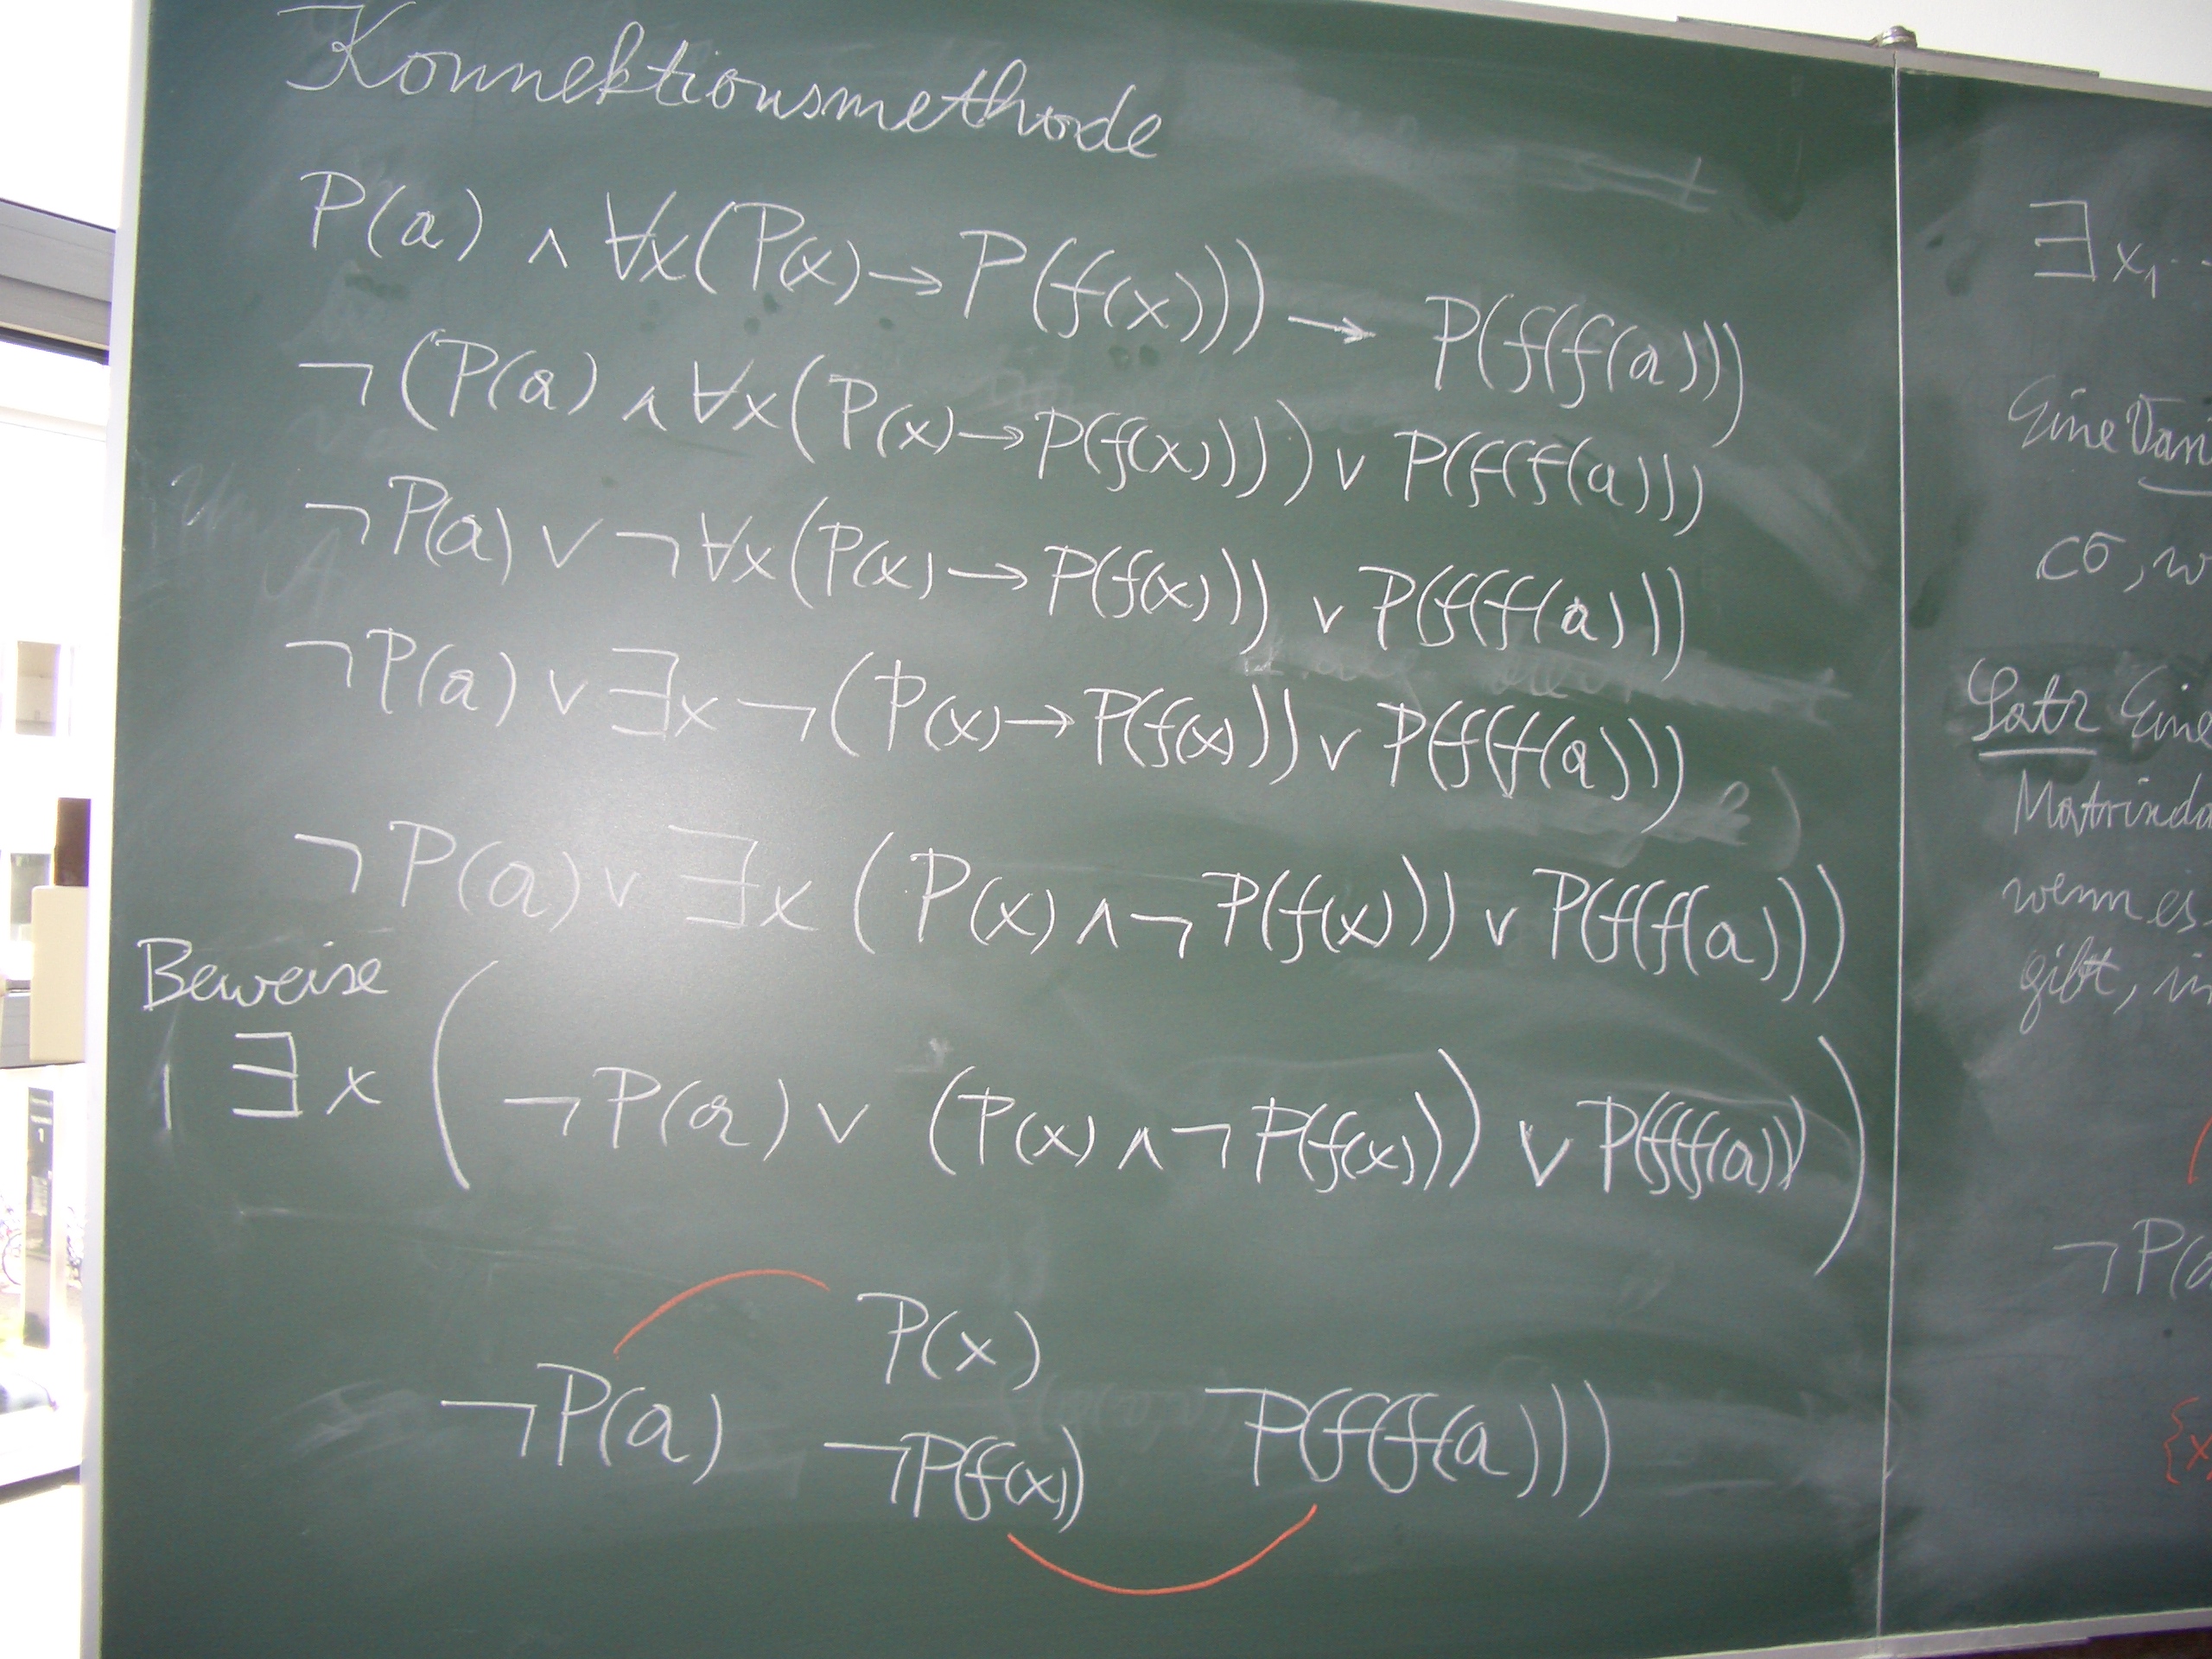 Konnektionsmethode
P(a) ∧ ∀x(P(x) → P(f(x))) → P(f(f(a)))
¬(P(a) ∧ ∀x(P(x) → P(f(x)))) ∨ P(f(f(a)))
¬P(a) ∨ ¬∀x(P(x) → P(f(x))) ∨ P(f(f(a)))
¬P(a) ∨ ∃x ¬(P(x) → P(f(x))) ∨ P(f(f(a)))
¬P(a) ∨ ∃x (P(x) ∧ ¬P(f(x))) ∨ P(f(f(a)))
Beweise
∃x (¬P(a) ∨ (P(x) ∧ ¬P(f(x))) ∨ P(f(f(a))))
P(x)
¬P(a) ¬P(f(x)) P(f(f(a)))
∃x₁
Eine
cσ, w
Satz Eine
wenn es
gibt, in
¬P(a
{x